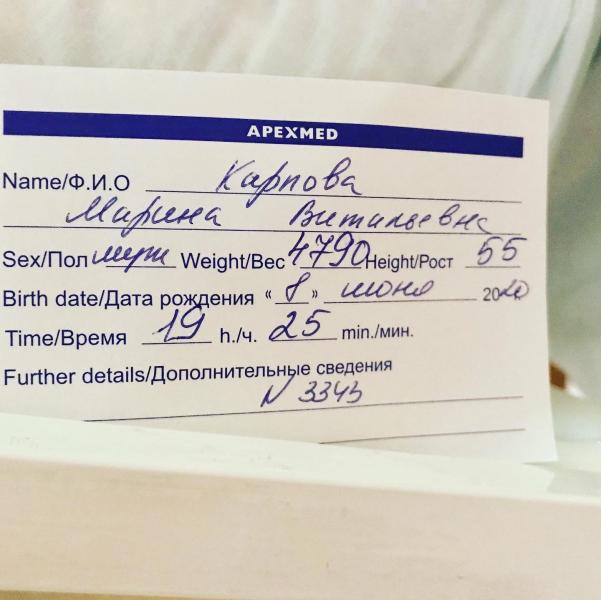 APEXMED
Name/Ф.И.О Карпова
Марина Витальевна
Sex/Пол муж Weight/Вес 4790 Height/Рост 55
Birth date/Дата рождения « 8 » июня 2020
Time/Время 19 h./ч. 25 min./мин.
Further details/Дополнительные сведения
N 3343